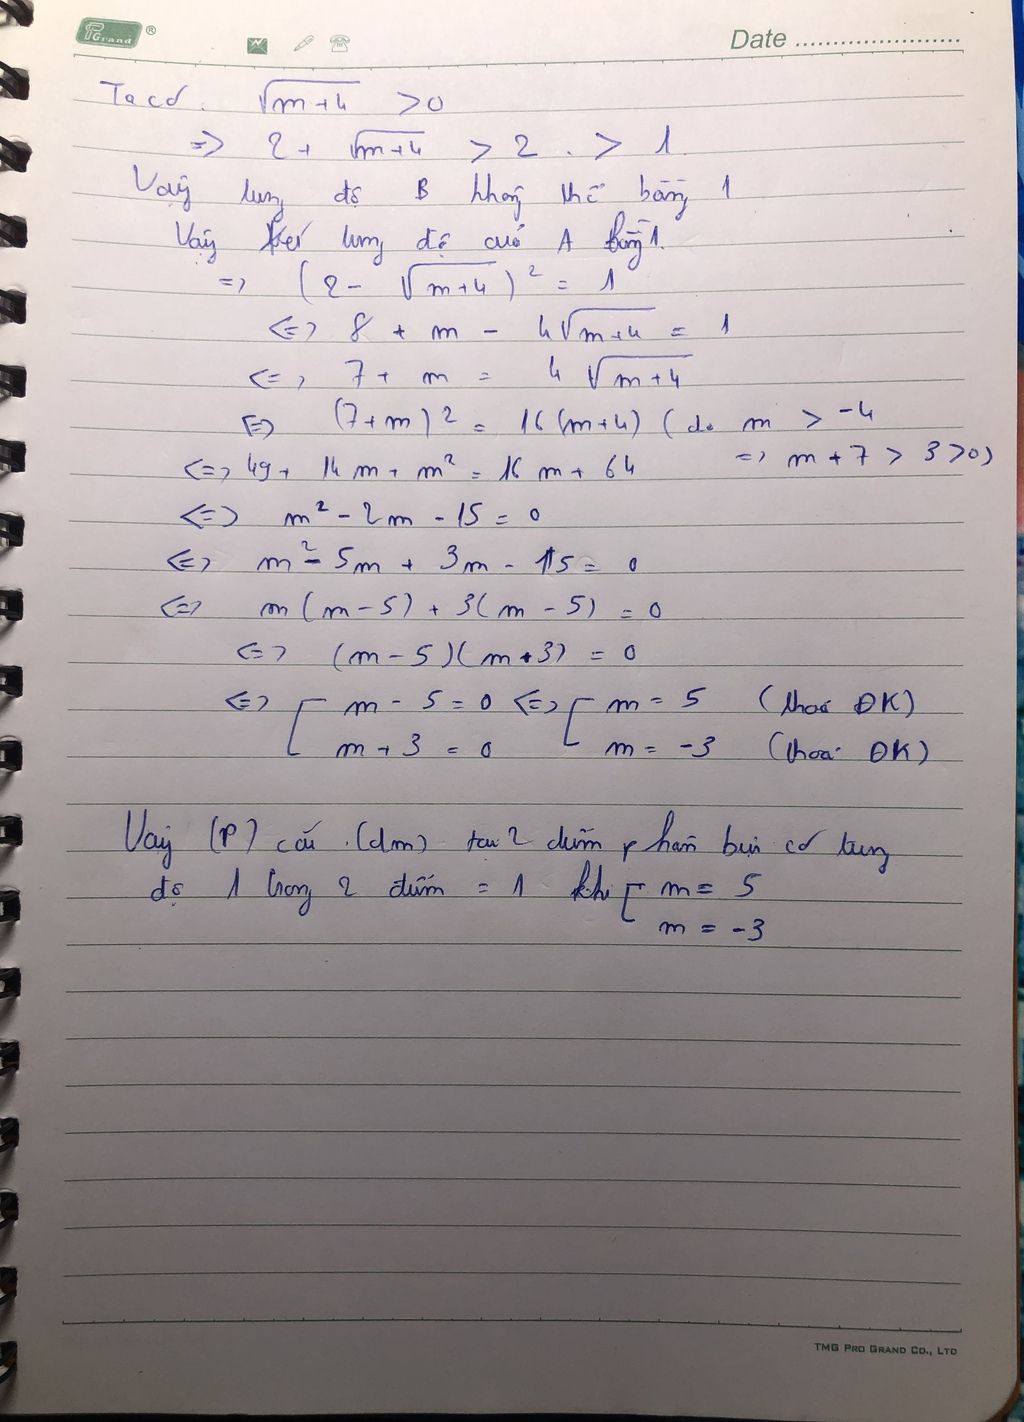 PGrand ®
Date
Ta có. √(m+4) > 0
=> 2 + √(m+4) > 2 . > 1
Vậy tung độ B không thể bằng 1
Vậy tung độ của A bằng 1.
=> (2 - √(m+4))² = 1
<=> 8 + m - 4√(m+4) = 1
<=> 7 + m = 4√(m+4)
<=> (7+m)² = 16(m+4) (do m > -4
=> m + 7 > 3 > 0)
<=> 49 + 14m + m² = 16m + 64
<=> m² - 2m - 15 = 0
<=> m² - 5m + 3m - 15 = 0
<=> m(m-5) + 3(m-5) = 0
<=> (m-5)(m+3) = 0
<=> [ m - 5 = 0 <=> [ m = 5 (thoả ĐK)
m + 3 = 0 m = -3 (thoả ĐK)
Vậy (P) cắt (dm) tại 2 điểm phân biệt có tung
độ 1 trong 2 điểm = 1 khi [ m = 5
m = -3
TMG Pro Grand Co., Ltd